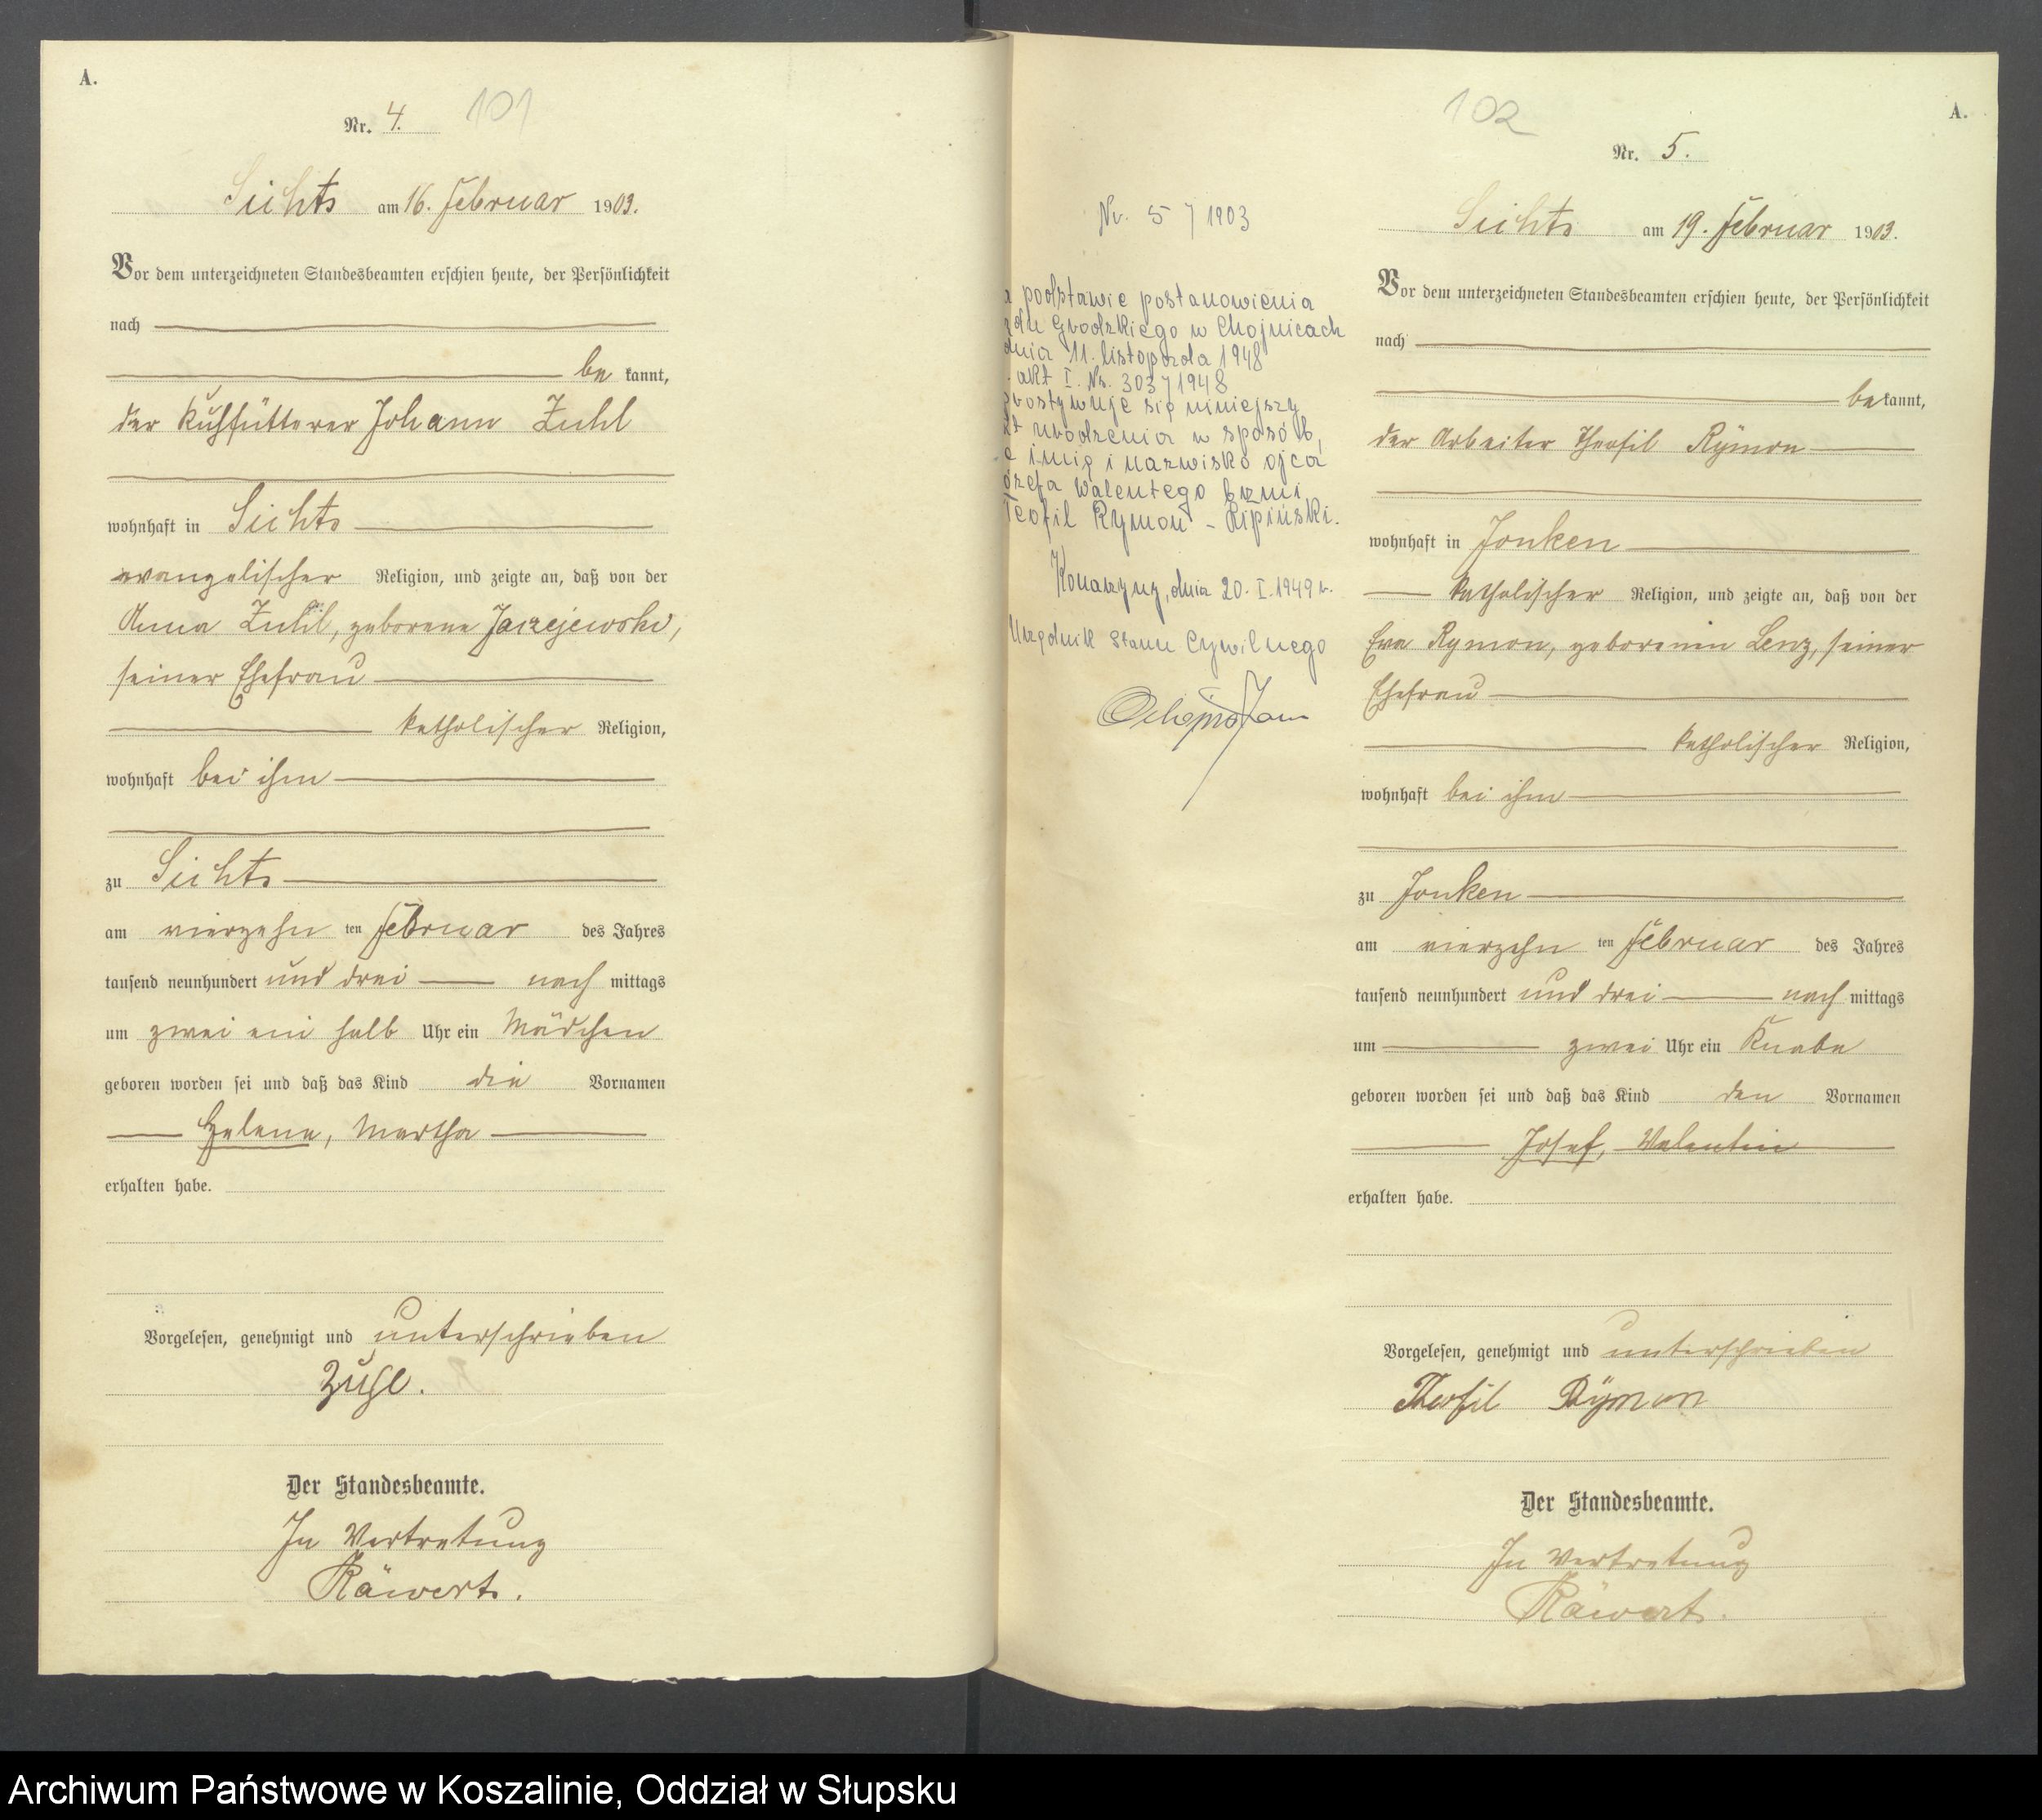 A.
Nr. 4. 101
Sichts am 16. Februar 1903.
Vor dem unterzeichneten Standesbeamten erschien heute, der Persönlichkeit
nach
be kannt,
der Kuhfütterer Johann Zuhl
wohnhaft in Sichts
evangelischer Religion, und zeigte an, daß von der
Anna Zuhl, geborene Jarzejewski,
seiner Ehefrau
katholischer Religion,
wohnhaft bei ihm
zu Sichts
am vierzehn ten Februar des Jahres
tausend neunhundert und drei nach mittags
um zwei ein halb Uhr ein Mädchen
geboren worden sei und daß das Kind die Vornamen
Helene, Martha
erhalten habe.
Vorgelesen, genehmigt und unterschrieben
Zuhl.
Der Standesbeamte.
In Vertretung
Räwert.
102
A.
Nr. 5.
Nr. 5 / 1903
podstawie postanowienia
Grodzkiego w Chojnicach
dnia 11. listopada 1948
akt I. Ns. 303/1948
prostywuje się niniejszy
urodzenia w sposób,
imię i nazwisko ojca
Józefa Walentego brzmi
Teofil Rymon - Lipiński.
Konarzyny, dnia 20. I. 1949 r.
Urzędnik Stanu Cywilnego
Sichts am 19. Februar 1903.
Vor dem unterzeichneten Standesbeamten erschien heute, der Persönlichkeit
nach
be kannt,
der Arbeiter Theofil Rymon
wohnhaft in Jonken
katholischer Religion, und zeigte an, daß von der
Eva Rymon, geborenen Lenz, seiner
Ehefrau
katholischer Religion,
wohnhaft bei ihm
zu Jonken
am vierzehn ten Februar des Jahres
tausend neunhundert und drei nach mittags
um zwei Uhr ein Knabe
geboren worden sei und daß das Kind den Vornamen
Josef, Valentin
erhalten habe.
Vorgelesen, genehmigt und unterschrieben
Theofil Rymon
Der Standesbeamte.
In Vertretung
Räwert.
Archiwum Państwowe w Koszalinie, Oddział w Słupsku